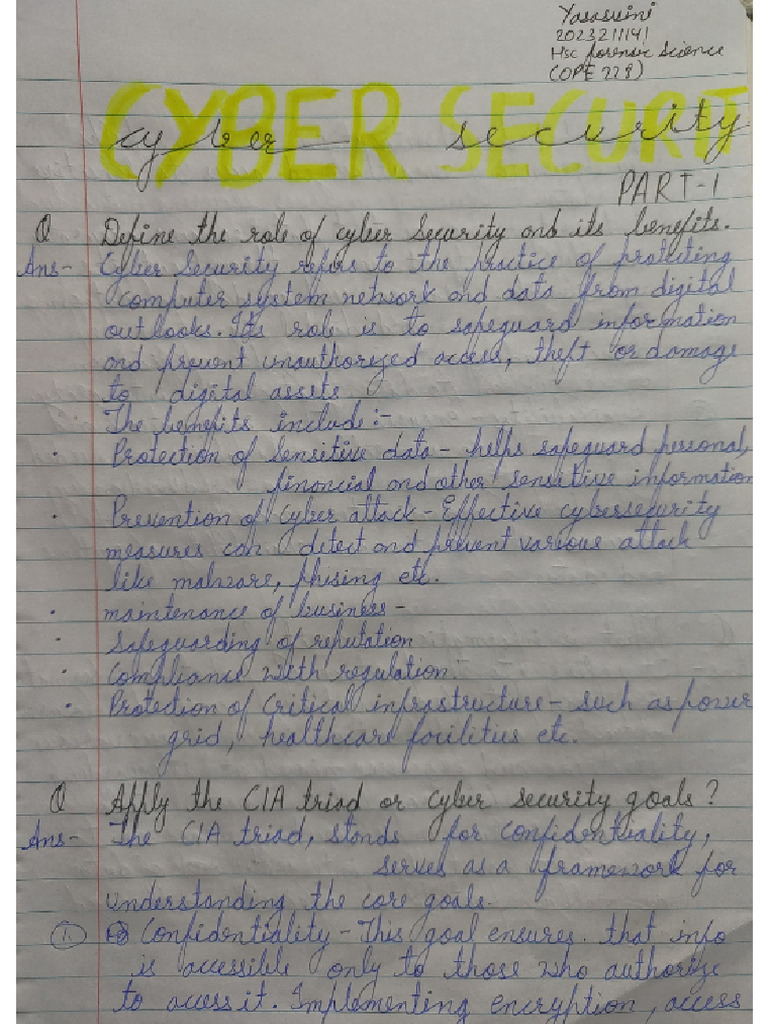 Yasaswini
2023211141
Msc forensic Science
(OPE 228)
CYBER SECURIT
cyber security
PART-1
Q Define the role of cyber Security and its benefits.
Ans- Cyber Security refers to the practice of protecting
computer system network and data from digital
outlooks. Its role is to safeguard information
and prevent unauthorized access, theft or damage
to digital assets
The benefits include:-
• Protection of Sensitive data - helps safeguard personal,
financial and other sensitive information
• Prevention of Cyber attack - Effective cybersecurity
measures can detect and prevent various attack
like malware, phising etc.
• maintenance of business -
• Safeguarding of reputation
• Compliance with regulation.
• Protection of Critical infrastructure - such as power
grid, healthcare facilities etc.
Q Apply the CIA triad or Cyber security goals ?
Ans- The CIA triad, stands for confidentuality,
serves as a framework for
understanding the core goals.
1. Confidentiality - This goal ensures that info
is accessible only to those who authorize
to access it. Implementing encryption, access